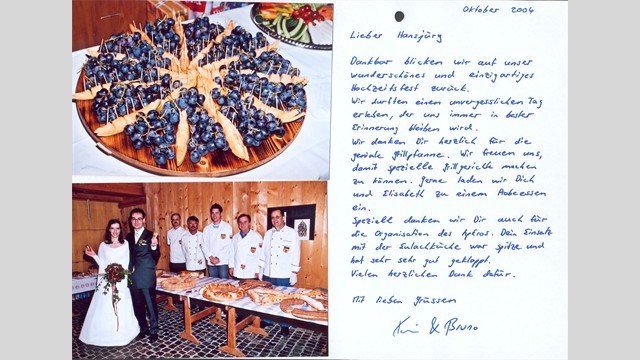 Oktober 2004
Lieber Hansjürg
Dankbar blicken wir auf unser
wunderschönes und einzigartiges
Hochzeitsfest zurück.
Wir durften einen unvergesslichen Tag
erleben, der uns immer in bester
Erinnerung bleiben wird.
Wir danken Dir herzlich für die
geniale Grillpfanne. Wir freuen uns,
damit spezielle Grillgerichte machen
zu können. Gerne laden wir Dich
und Elisabeth zu einem Aabeessen
ein.
Speziell danken wir Dir auch für
die Organisation des Apéros. Dein Einsatz
mit der Eulachküche war spitze und
hat sehr sehr gut geklappt.
Vielen herzlichen Dank dafür.
Mit lieben Grüssen
& Bruno